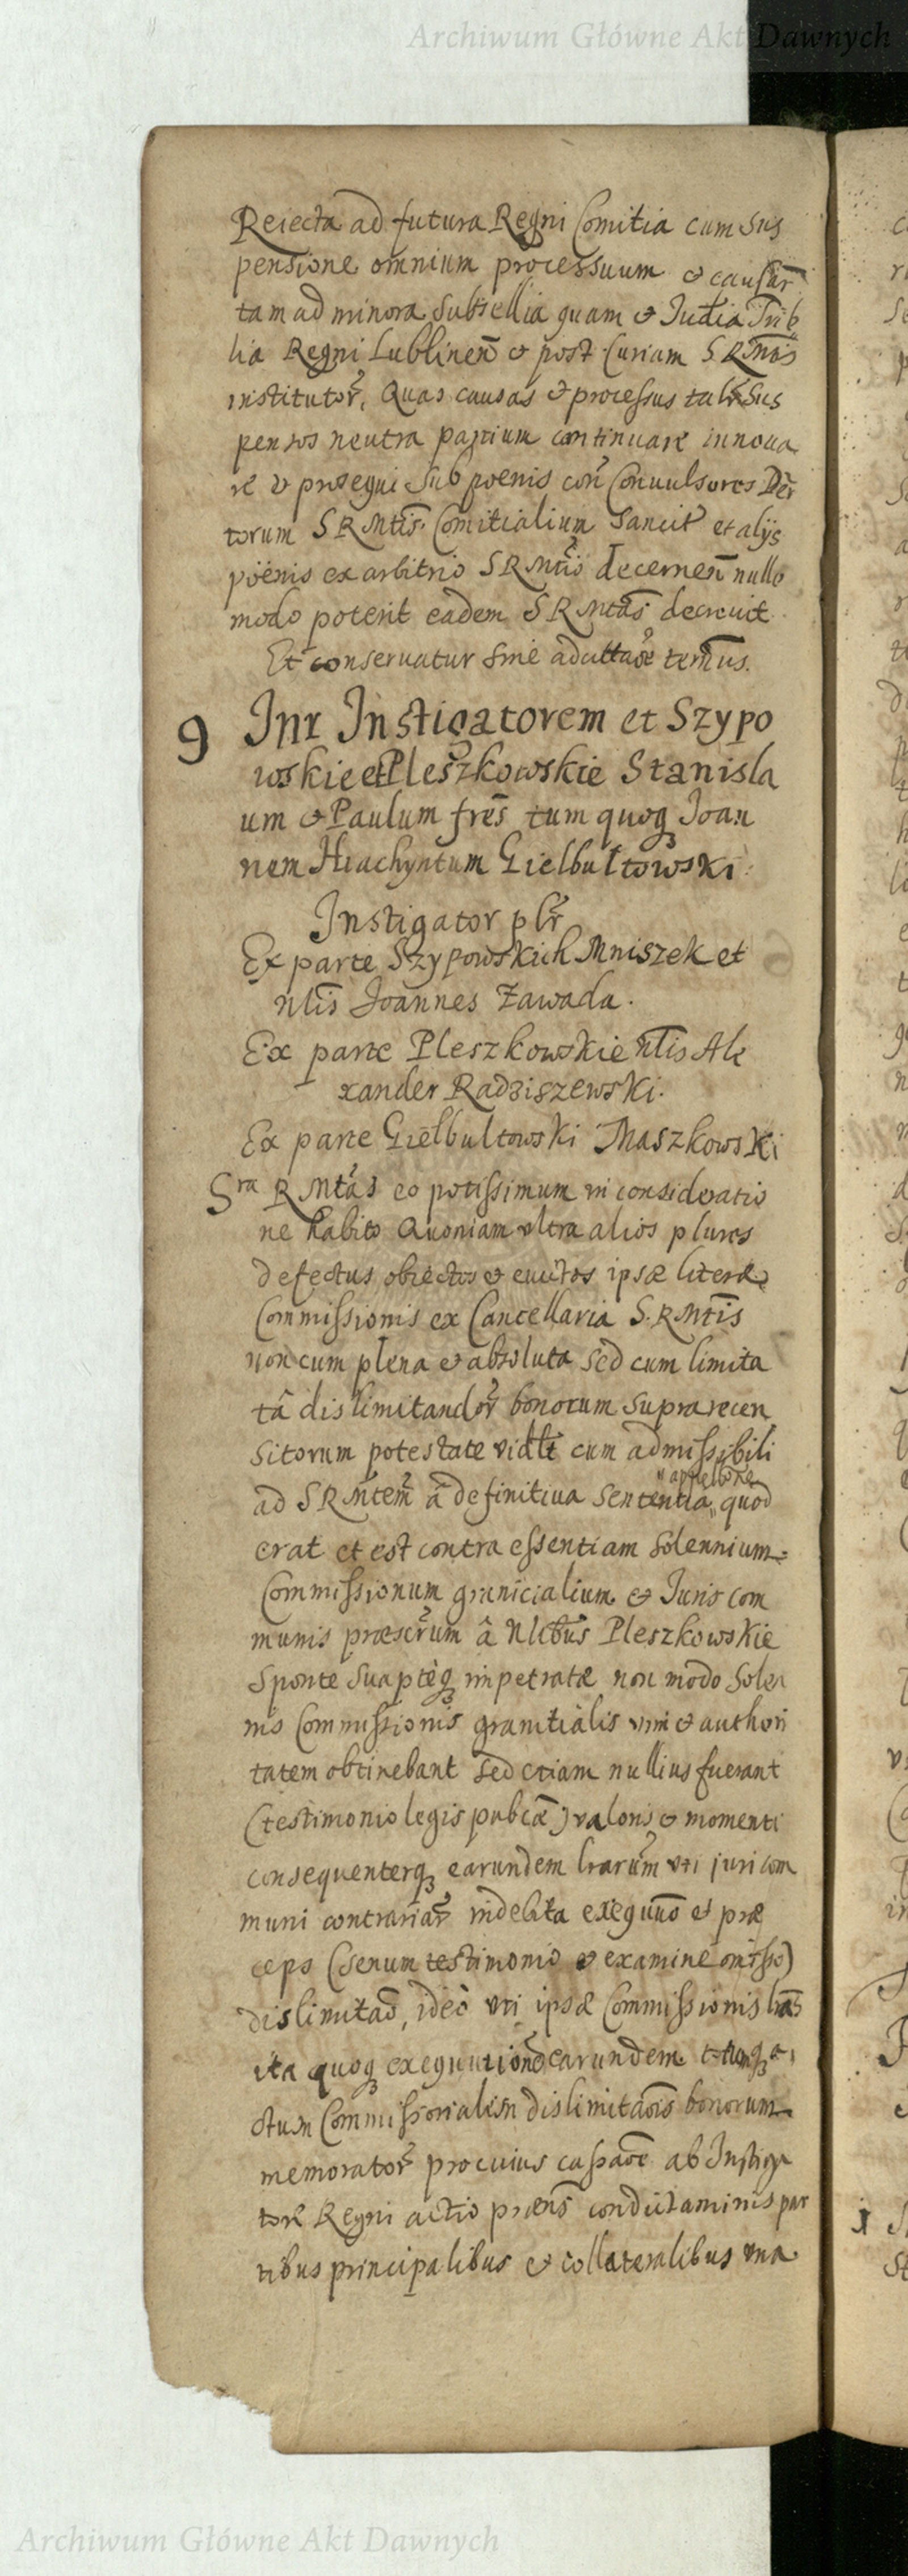 Archiwum Główne Akt Dawnych
Reiecta ad futura Regni Comitia cum Sus
pensione omnium processuum & causar̄
tam ad minora Subsellia quam & Judia Trib
lia Regni Lublinen̄ & post Curiam S R Mtis
institutor̄, Quas causas & processus talr Sus
pensos neutra partium continuare innoua
re & prosequi sub poenis con̄ Conuulsores Der
torum S R Mtis Comitialium Sancit̄ et alijs
poenis ex arbitrio S R Mtis decernen̄ nullo
modo poterit eadem S R Mtas decreuit
Et conservatur Sine terminus.
9 Inr Instigatorem et Szypo
wskie et Pleszkowskie Stanisla
um & Paulum fres tum quoq Joan
nem Hiachyntum Gielbultowski
Instigator plr
Ex parte Szypowskich Mniszek et
Nlis Joannes Zawada.
Ex parte Pleszkowskie Nlis Ale
xander Radziszewski.
Ex parte Gielbultowski Maszkowski
Sra R Mtas eo potissimum in consideratio
ne habito Quoniam ultra alios plures
defectus obiectos & euictos ipsæ literæ
Commissionis ex Cancellaria S. R Mtis
non cum plena & absoluta sed cum limita
tâ dislimitandor̄ bonorum supra recen
sitorum potestate vidlt cum admissibili
ad S R Mtem â definitiua Sententia "appellone" quod
erat et est contra essentiam Solennium
Commissionum granicialium & Juris com
munis præscrum â Nlibus Pleszkowskie
Sponte Suapteq impetratæ non modo Solen
nis Commissionis granitialis vim & authori
tatem obtinebant sed etiam nullius fuerant
(testimonio legis pubcæ) valoris & momenti
consequenterq earundem lrarum uti juri com
muni contrariar̄ indebita exequuo et præ
ceps (senum testimonio & examine omisso)
dislimitao, ideo uti ipsæ Commissionis lras
ita quoq exequutione earundem a
ctum Commissorialem dislimitaois bonorum
memorator̄ pro cuius cassaoe ab Instiga
tore Regni actio præns condictaminis par
tibus principalibus & collateralibus una
Archiwum Główne Akt Dawnych